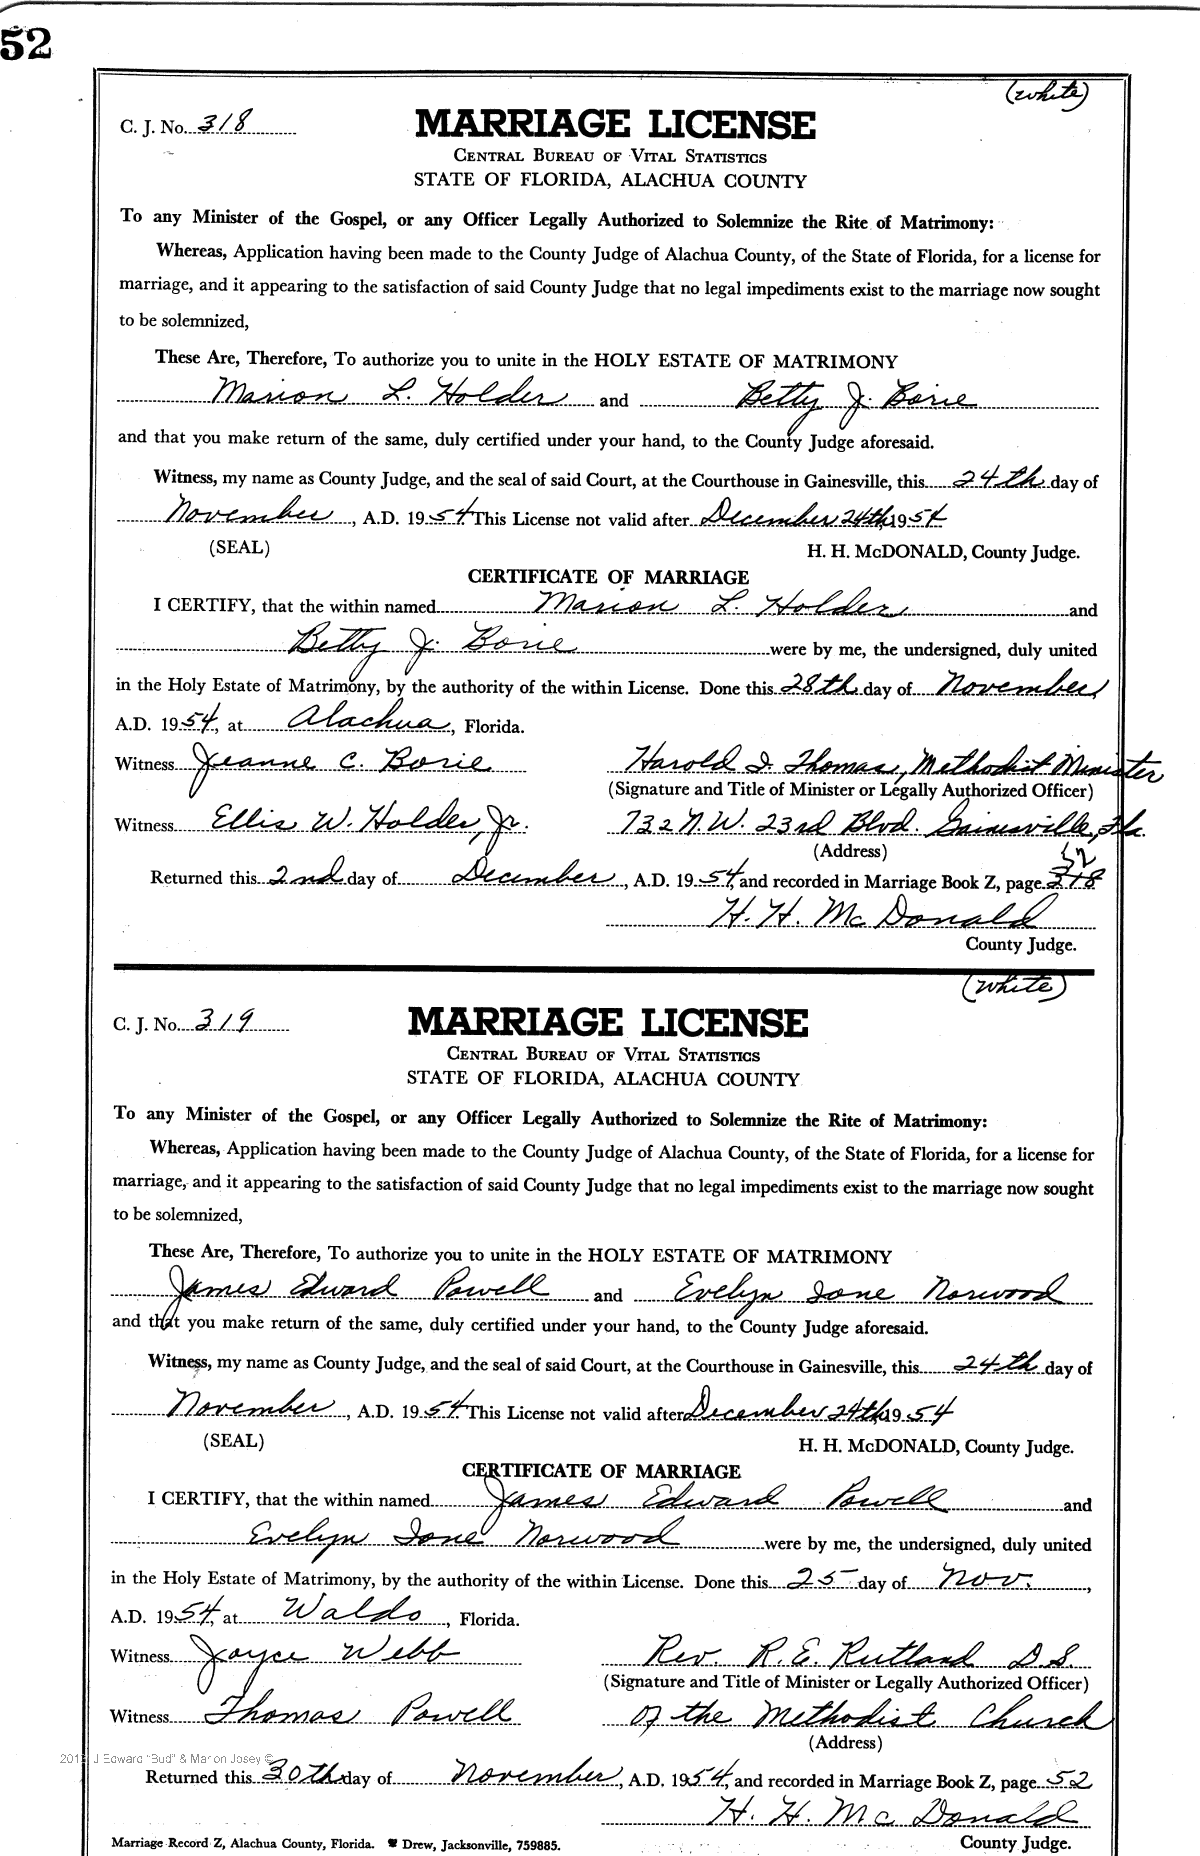 52
(white)
C. J. No. 318
MARRIAGE LICENSE
CENTRAL BUREAU OF VITAL STATISTICS
STATE OF FLORIDA, ALACHUA COUNTY
To any Minister of the Gospel, or any Officer Legally Authorized to Solemnize the Rite of Matrimony:
Whereas, Application having been made to the County Judge of Alachua County, of the State of Florida, for a license for
marriage, and it appearing to the satisfaction of said County Judge that no legal impediments exist to the marriage now sought
to be solemnized,
These Are, Therefore, To authorize you to unite in the HOLY ESTATE OF MATRIMONY
Marion L. Holder and Betty J. Borie
and that you make return of the same, duly certified under your hand, to the County Judge aforesaid.
Witness, my name as County Judge, and the seal of said Court, at the Courthouse in Gainesville, this 24th day of
November, A.D. 1954 This License not valid after December 24th, 1954
(SEAL) H. H. McDONALD, County Judge.
CERTIFICATE OF MARRIAGE
I CERTIFY, that the within named Marion L. Holder and
Betty J. Borie were by me, the undersigned, duly united
in the Holy Estate of Matrimony, by the authority of the within License. Done this 28th day of November,
A.D. 1954, at Alachua, Florida.
Witness Jeanne C. Borie Harold I. Thomas, Methodist Minister
(Signature and Title of Minister or Legally Authorized Officer)
Witness Ellis W. Holder, Jr. 732 N.W. 23rd Blvd. Gainesville, Fla.
(Address)
52
Returned this 2nd day of December, A.D. 1954, and recorded in Marriage Book Z, page 318
H. H. McDonald
County Judge.
(white)
C. J. No. 319
MARRIAGE LICENSE
CENTRAL BUREAU OF VITAL STATISTICS
STATE OF FLORIDA, ALACHUA COUNTY
To any Minister of the Gospel, or any Officer Legally Authorized to Solemnize the Rite of Matrimony:
Whereas, Application having been made to the County Judge of Alachua County, of the State of Florida, for a license for
marriage, and it appearing to the satisfaction of said County Judge that no legal impediments exist to the marriage now sought
to be solemnized,
These Are, Therefore, To authorize you to unite in the HOLY ESTATE OF MATRIMONY
James Edward Powell and Evelyn Ione Norwood
and that you make return of the same, duly certified under your hand, to the County Judge aforesaid.
Witness, my name as County Judge, and the seal of said Court, at the Courthouse in Gainesville, this 24th day of
November, A.D. 1954. This License not valid after December 24th, 1954
(SEAL) H. H. McDONALD, County Judge.
CERTIFICATE OF MARRIAGE
I CERTIFY, that the within named James Edward Powell and
Evelyn Ione Norwood were by me, the undersigned, duly united
in the Holy Estate of Matrimony, by the authority of the within License. Done this 25 day of Nov.,
A.D. 1954, at Waldo, Florida.
Witness Joyce Webb Rev. R. E. Rutland D.S.
(Signature and Title of Minister or Legally Authorized Officer)
Witness Thomas Powell of the Methodist Church
(Address)
J Edward "Bud" & Marion Josey ©
Returned this 30th day of November, A.D. 1954, and recorded in Marriage Book Z, page 52
H. H. McDonald
Marriage Record Z, Alachua County, Florida. Drew, Jacksonville, 759885. County Judge.